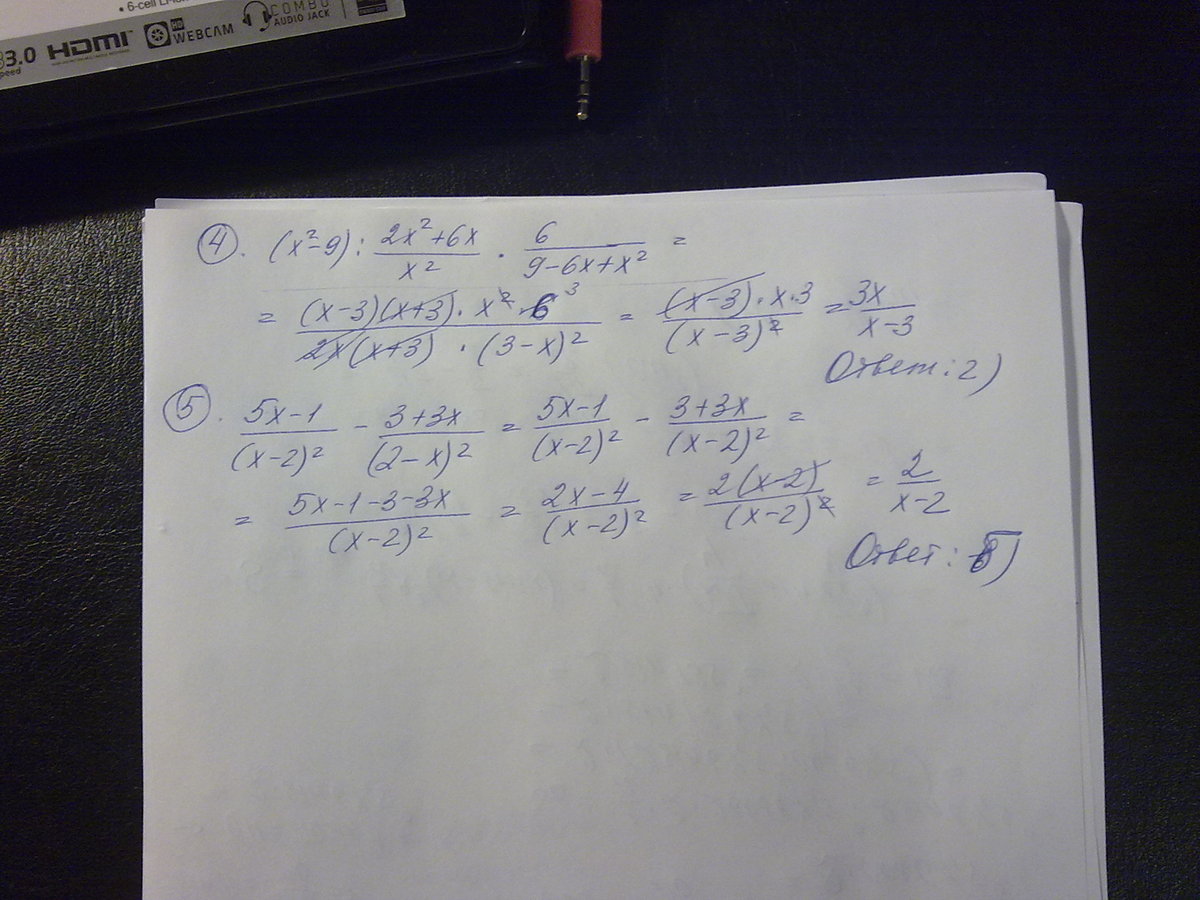 • 6-cell Li-
3.0 HDMI HD WEBCAM COMBO AUDIO JACK
peed
4. (x²-9) : (2x²+6x)/x² · 6/(9-6x+x²) =
= ((x-3)(x+3) · x² · 6 3)/(2x(x+3) · (3-x)²) = ((x-3) · x · 3)/(x-3)² = 3x/(x-3)
Ответ: 2)
5. (5x-1)/(x-2)² - (3+3x)/(2-x)² = (5x-1)/(x-2)² - (3+3x)/(x-2)² =
= (5x-1-3-3x)/(x-2)² = (2x-4)/(x-2)² = 2(x-2)/(x-2)² = 2/(x-2)
Ответ: